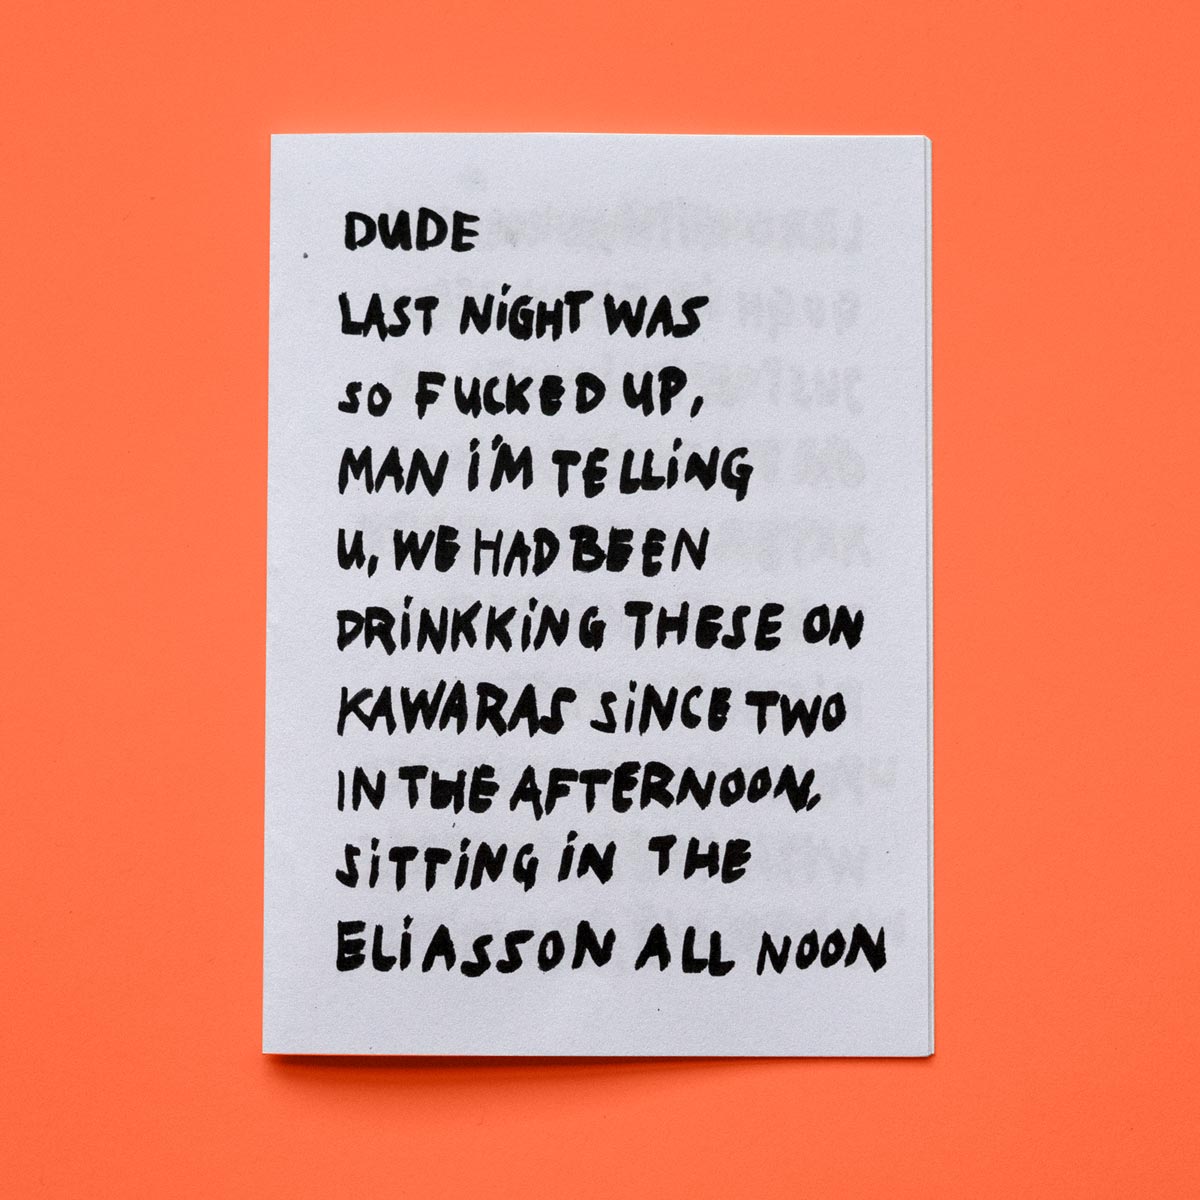 DUDE
LAST NiGHT WAS
SO FUCKED UP,
MAN i'M TELLiNG
U, WE HAD BEEN
DRiNKKiNG THESE ON
KAWARAS SiNCE TWO
IN THE AFTERNOON,
SiTTiNG iN THE
ELiASSON ALL NOON